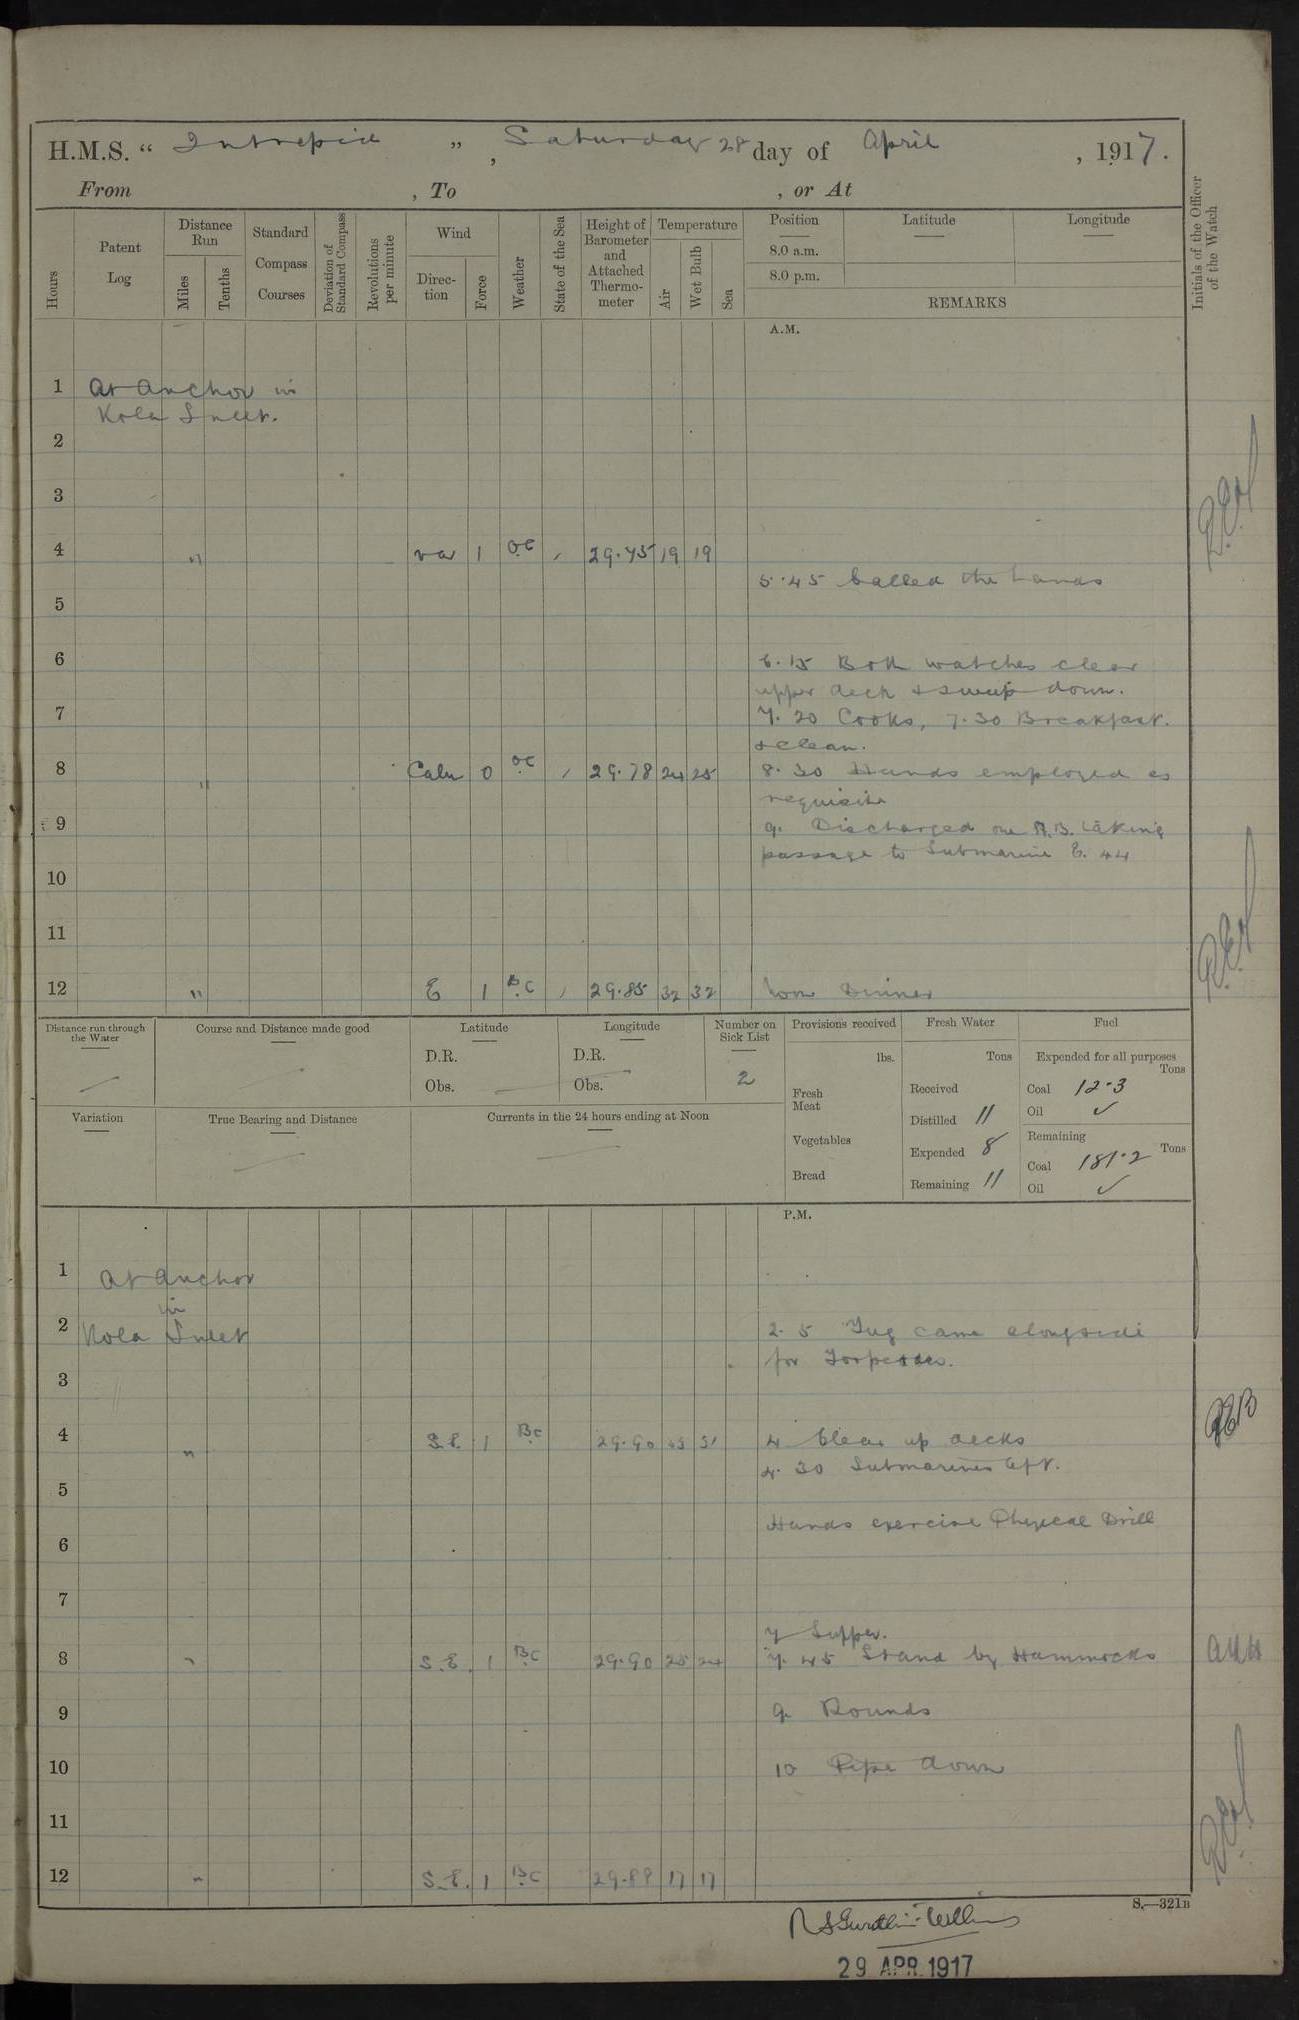 H.M.S. “ Intrepid ” , Saturday 28 day of April , 1917.
From , To , or At
Hours
Patent Log
Distance Run
Miles
Tenths
Standard Compass Courses
Deviation of Standard Compass
Revolutions per minute
Wind
Direction
Force
Weather
State of the Sea
Height of Barometer and Attached Thermometer
Temperature
Air
Wet Bulb
Sea
Position
8.0 a.m.
8.0 p.m.
Latitude
Longitude
REMARKS
Initials of the Officer of the Watch
A.M.
1 At Anchor in
Kola Inlet.
2
3
4 " var 1 oc 29.75 19 19
5.45 Called the hands
5
6 6.15 Both watches clear
upper deck & sweep down.
7 7.20 Cooks, 7.30 Breakfast.
& clean.
8 " Calm 0 oc 29.78 24 25 8.30 Hands employed as
requisite
9 9. Discharged one A.B. taking
passage to Submarine E. 44
10
11
12 " E 1 BC 29.85 32 32 Noon Dinner
Distance run through the Water
Course and Distance made good
Latitude
D.R.
Obs.
Longitude
D.R.
Obs.
Number on Sick List
2
Variation
True Bearing and Distance
Currents in the 24 hours ending at Noon
Provisions received
lbs.
Fresh Meat
Vegetables
Bread
Fresh Water
Tons
Received
Distilled 11
Expended 8
Remaining 11
Fuel
Expended for all purposes
Tons
Coal 12.3
Oil ✓
Remaining
Tons
Coal 181.2
Oil ✓
P.M.
1 At Anchor
in
2 Kola Inlet 2.5 Tug came alongside
for Torpedoes.
3
4 " S.E. 1 BC 29.90 4 Clear up decks
4.30 Submarines left.
5
Hands exercise Physical Drill
6
7
7 Supper.
8 " S.E. 1 BC 29.90 25 24 7.45 Stand by Hammocks
9 9 Rounds
10 10 Pipe down
11
12 " S.E. 1 BC 29.89 17 17
S.—321B
29 APR 1917